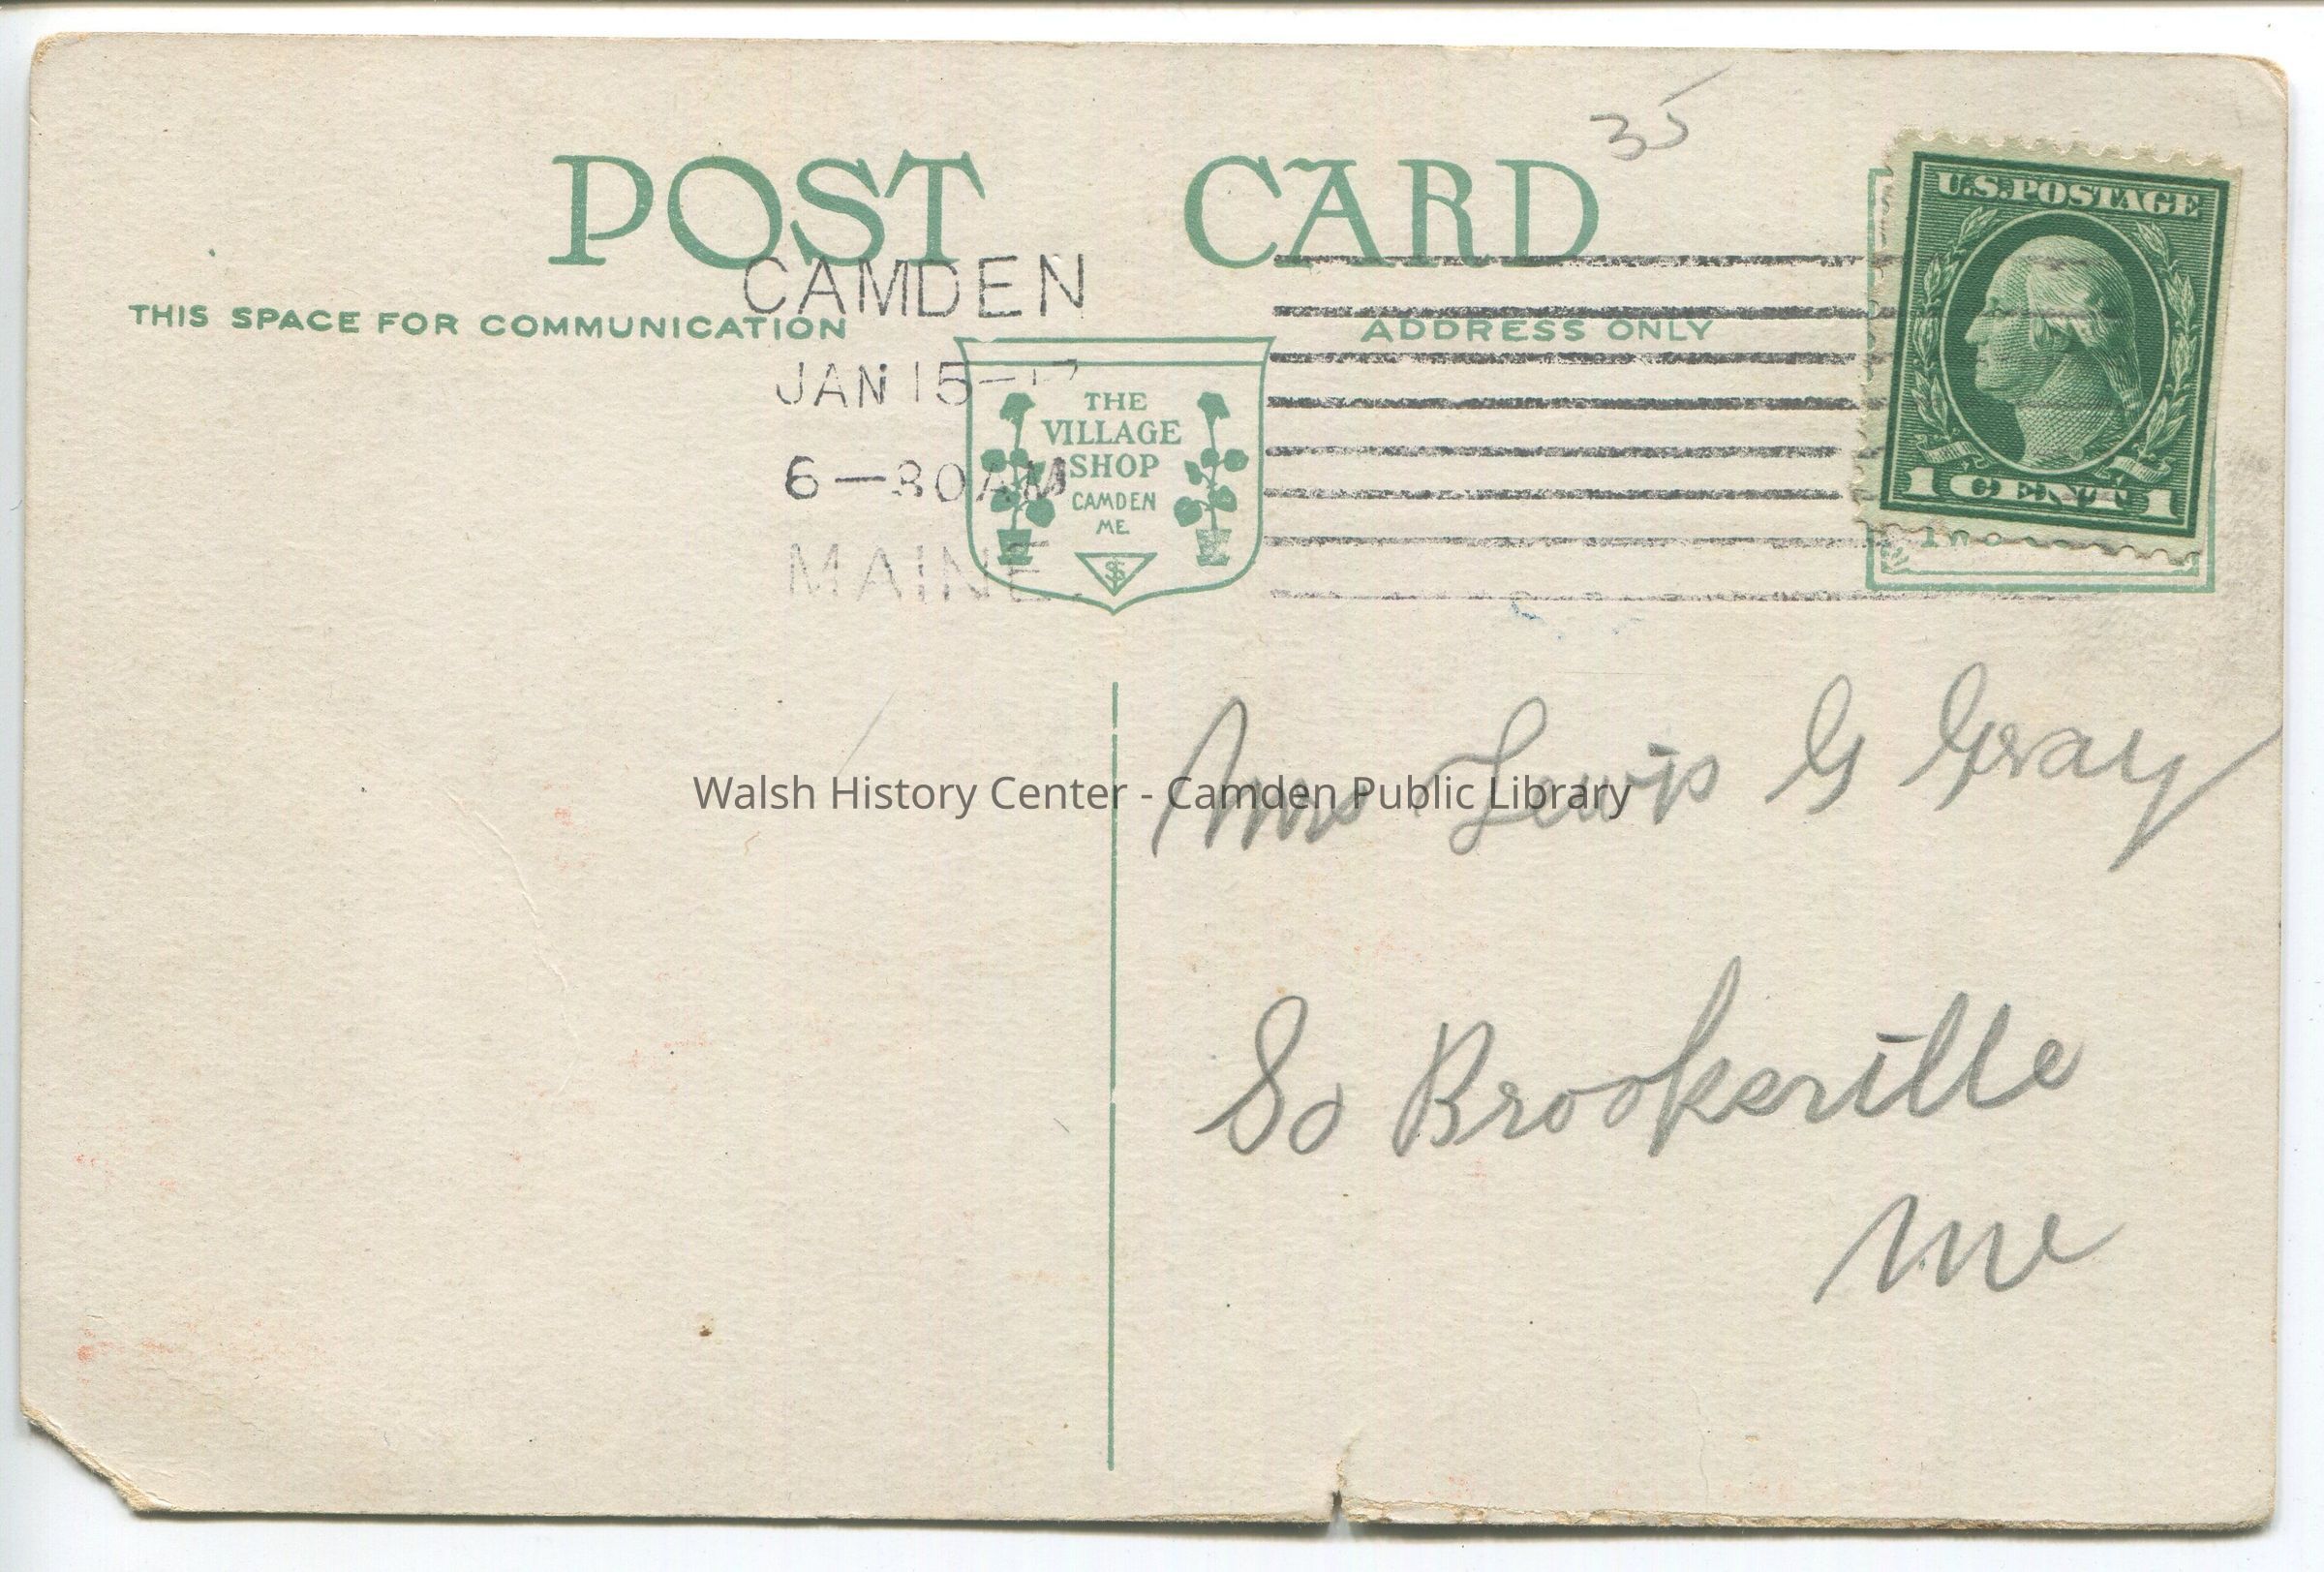 35
POST CARD
THIS SPACE FOR COMMUNICATION
ADDRESS ONLY
CAMDEN
JAN 15-17
6-30AM
MAINE.
THE
VILLAGE
SHOP
CAMDEN
ME.
U.S.POSTAGE
1 CENT 1
Walsh History Center - Camden Public Library
Mrs Lewis G Gray
So Brooksville
Me